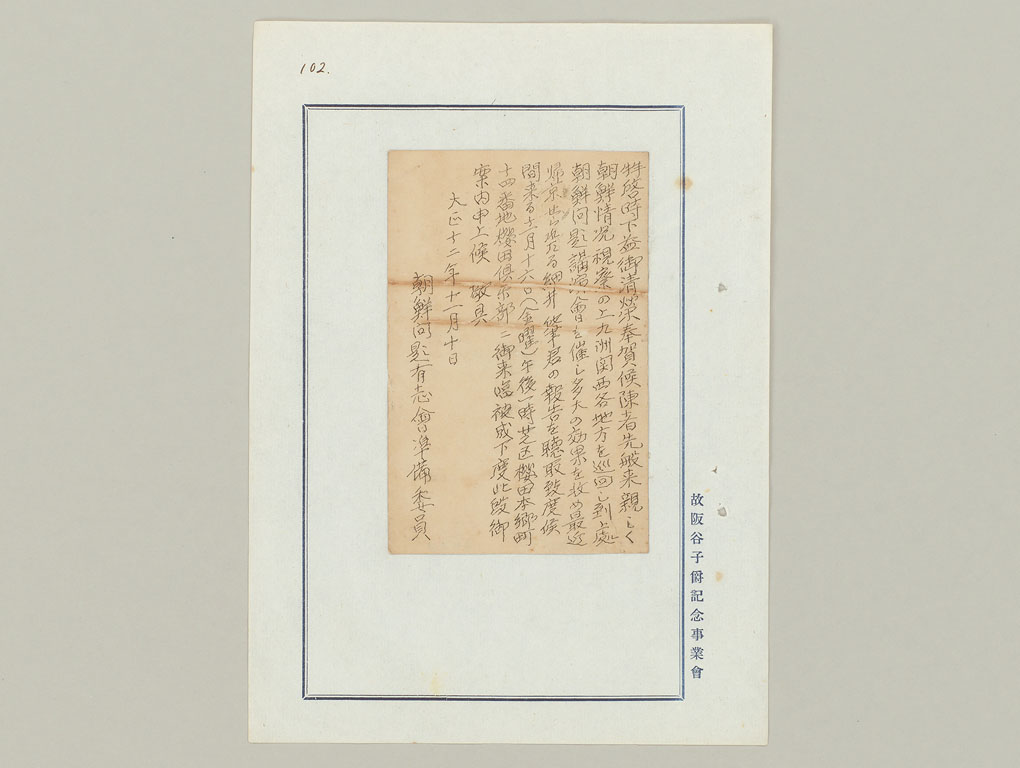 102.
拝啓時下益御清榮奉賀候陳者先般来親しく
朝鮮情况視察の上九洲関西各地方を巡回し到る處
朝鮮问題講演會を催し多大の効果を收め最近
帰京せられたる細井肇君の報告を聴取致度候
間来る十一月十六日(金曜)午後一時芝区櫻田本郷町
十四番地櫻田倶楽部ニ御来臨被成下度此段御
案内申上候 敬具
大正十二年十一月十日
朝鮮问題有志會準備委員
故阪谷子爵記念事業會